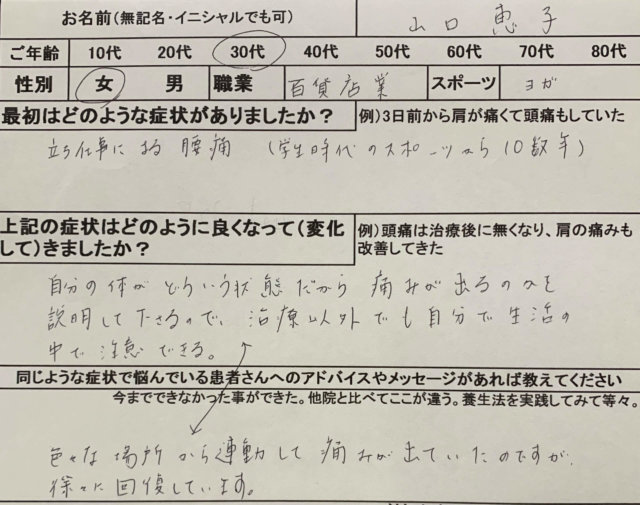 お名前(無記名・イニシャルでも可) 山口 恵子
ご年齢 10代 20代 30代 40代 50代 60代 70代 80代
性別 女 男 職業 百貨店業 スポーツ ヨガ
最初はどのような症状がありましたか? 例)3日前から肩が痛くて頭痛もしていた
立ち仕事による腰痛 (学生時代のスポーツから10数年)
上記の症状はどのように良くなって(変化して)きましたか? 例)頭痛は治療後に無くなり、肩の痛みも改善してきた
自分の体がどういう状態だから痛みが出るのかを
説明して下さるので、治療以外でも自分で生活の
中で注意できる。
同じような症状で悩んでいる患者さんへのアドバイスやメッセージがあれば教えてください
今までできなかった事ができた。他院と比べてここが違う。養生法を実践してみて等々。
色々な場所から連動して痛みが出ていたのですが、
徐々に回復しています。